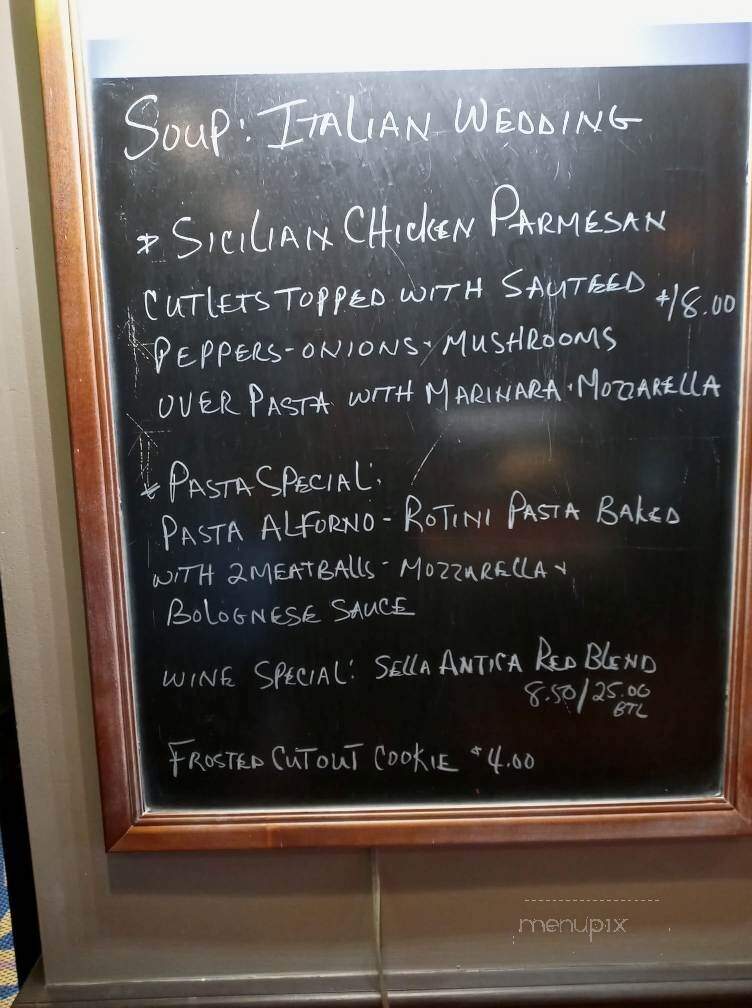 SOUP: ITALIAN WEDDING
* SICILIAN CHICKEN PARMESAN
CUTLETS TOPPED WITH SAUTEED $18.00
PEPPERS-ONIONS+MUSHROOMS
OVER PASTA WITH MARINARA+MOZZARELLA
* PASTA SPECIAL:
PASTA ALFORNO-ROTINI PASTA BAKED
WITH 2 MEATBALLS-MOZZARELLA+
BOLOGNESE SAUCE
WINE SPECIAL: SELLA ANTICA RED BLEND
8.50/25.00
BTL
FROSTED CUTOUT COOKIE $4.00
menupix